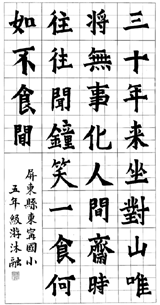 三十年來坐對山唯
將無事化人間齋時
往往聞鐘笑一食何
如不食閒
屏東縣東寧國小
五年級游沐融